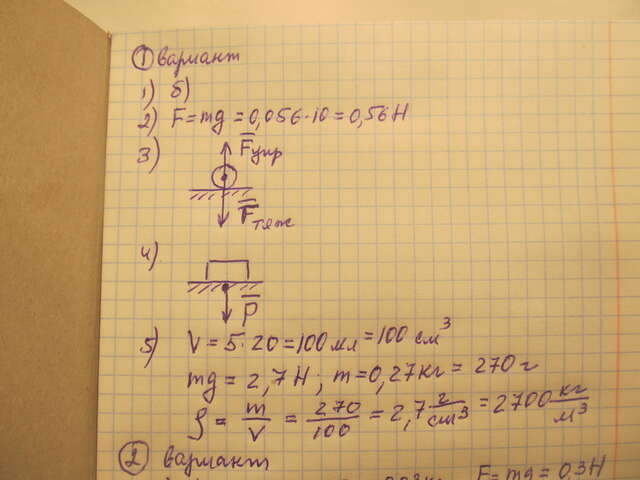 ① вариант
1) б)
2) F=mg=0,056·10=0,56Н
3) F̅упр
F̅тяж
4)
P̅
5) V=5·20=100мл=100см³
mg=2,7Н; m=0,27кг=270г
ρ = m/V = 270/100 = 2,7 г/см³ = 2700 кг/м³
② вариант
F=mg=0,3Н